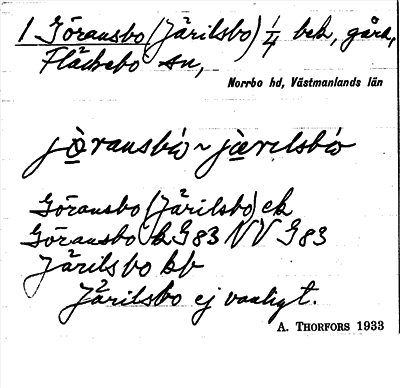 1 Göransbo (Järilsbo) 1/4 bek, gård,
Fläckebo sn,
Norrbo hd, Västmanlands län
jö̀ransbo ~ jä̀rilsbo
Göransbo (Järilsbo) ek
Göransbo k G83 NV G83
Järilsbo kb
Järilsbo ej vanligt.
A. THORFORS 1933